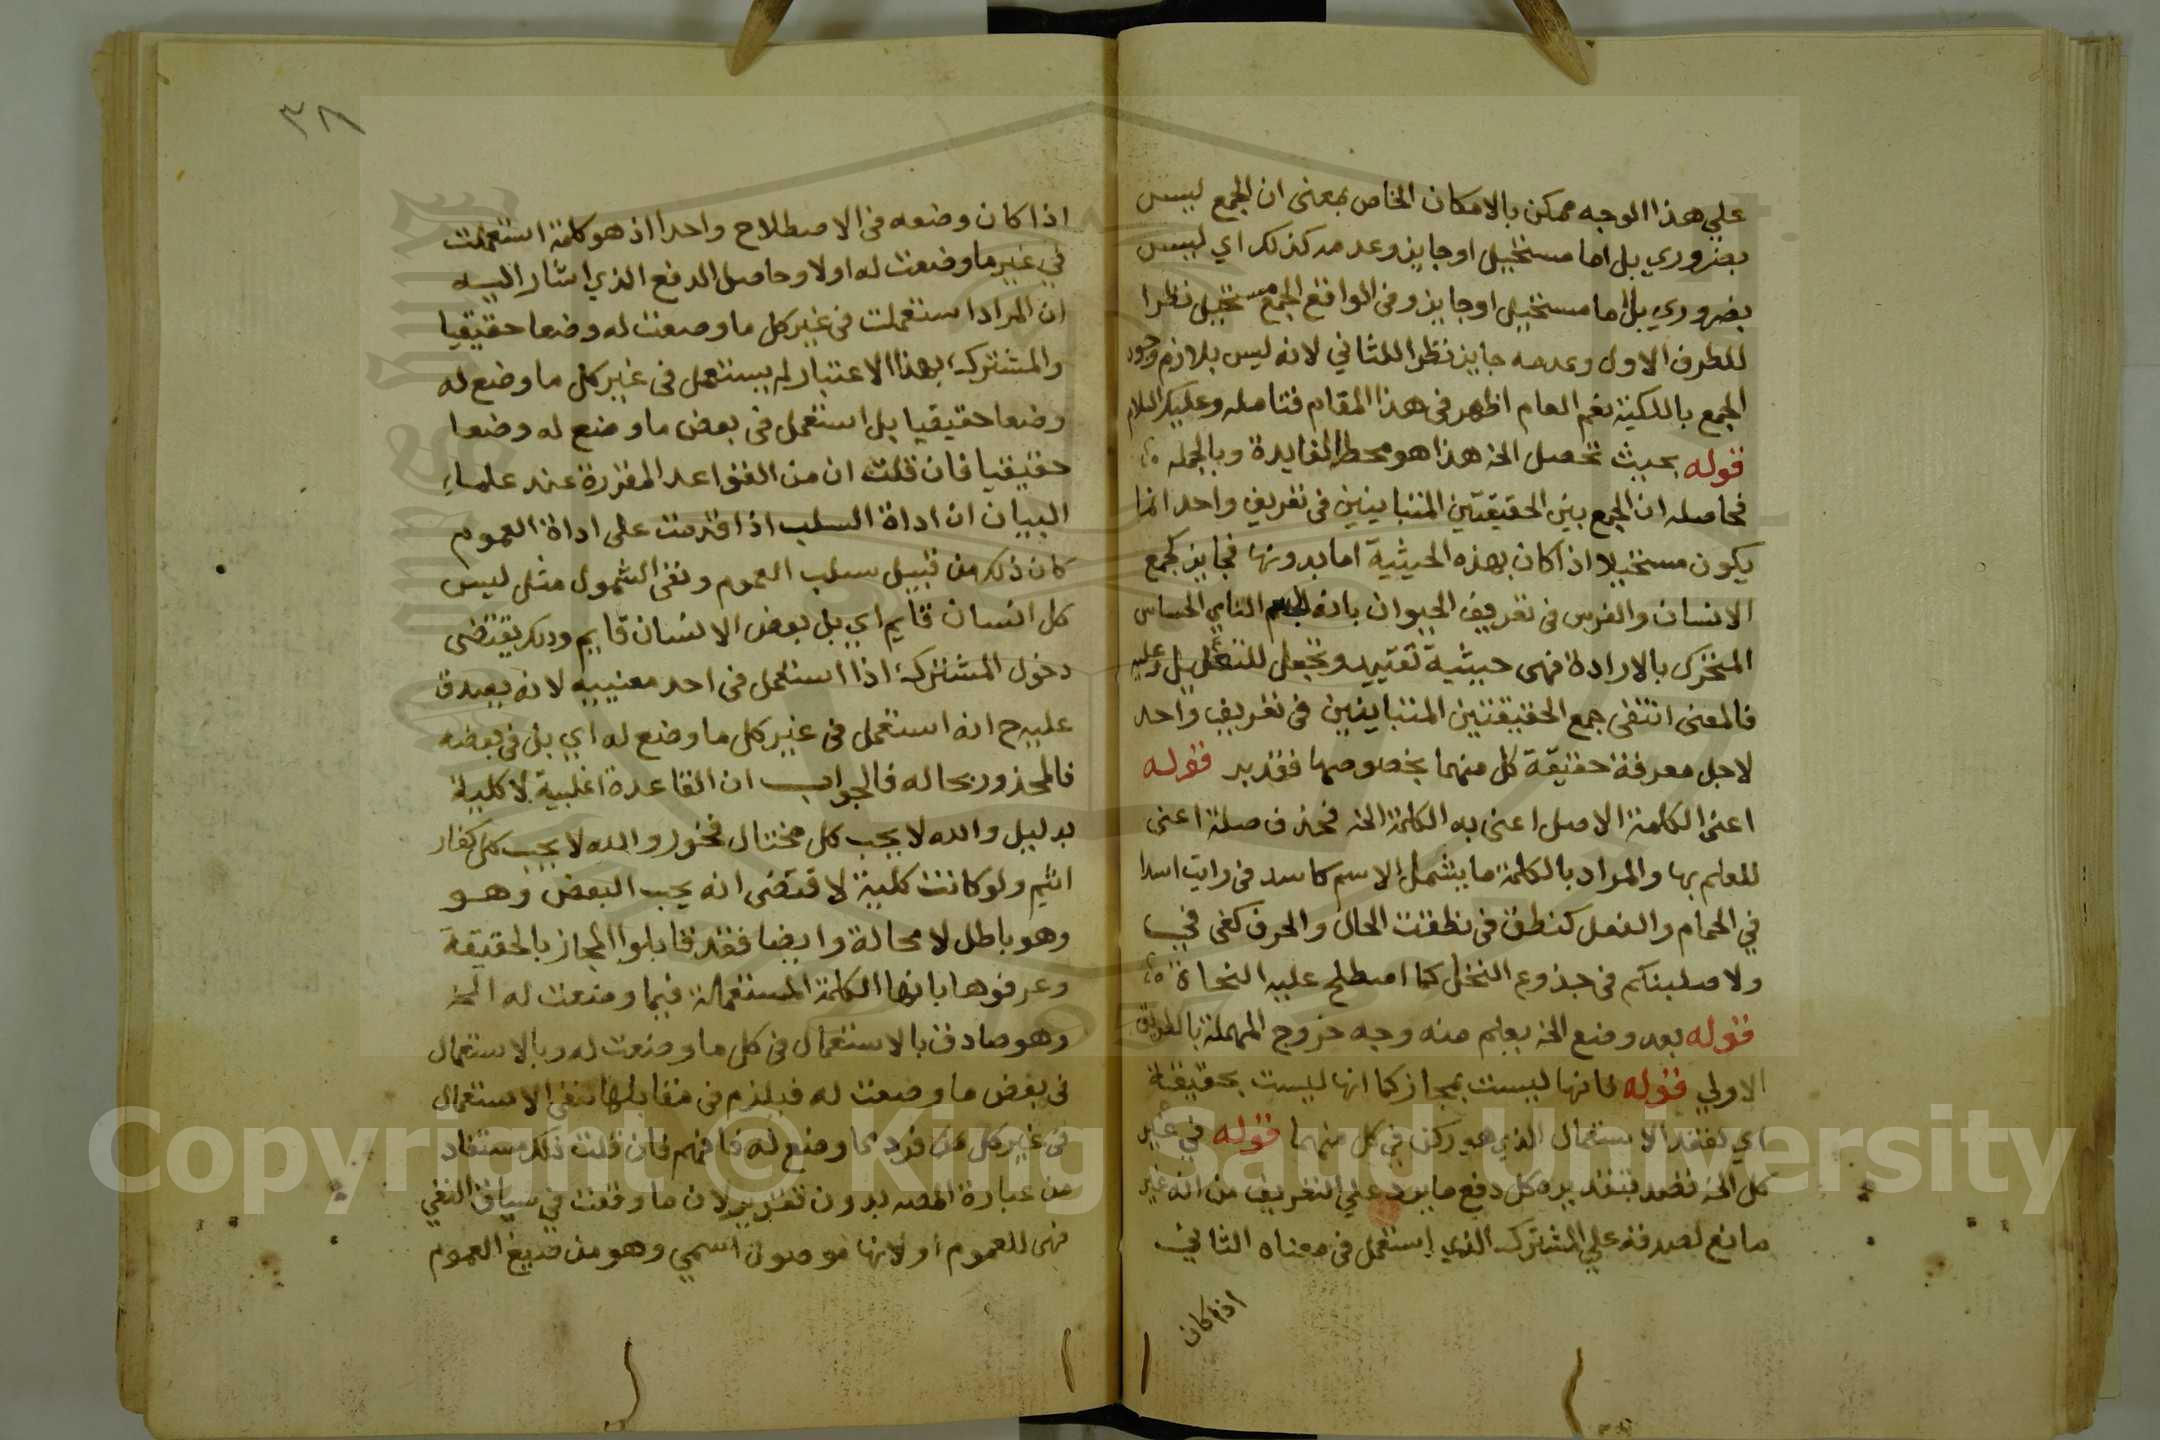 علي هذا الوجه ممكن بالامكان الخاص بمعنى ان الجمع ليس
بضروري بل اما مستحيل او جايز وعدمه كذلك اي ليس
بضروري بل اما مستحيل او جايز وفى الواقع الجمع مستحيل نظرا
للطرف الاول وعدمه جايز نظرا للثاني لانه ليس بلازم وجود
الجمع بالكلية نعم العام اظهر فى هذا المقام فتامله وعليك السلام
قوله بحيث تحصل الخ هذا هو محط الفايدة وبالجمله
فحاصله ان الجمع بين الحقيقتين المتباينين فى تعريف واحد انما
يكون مستحيلا اذا كان بهذه الحيثية اما بدونها فجايز كجمع
الانسان والفرس فى تعريف الحيوان بانه الجسم النامي الحساس
المتحرك بالارادة فهى حيثية تقييد وتجعل للتعليل وعليه
فالمعنى انتفى جمع الحقيقتين المتباينين فى تعريف واحد
لاجل معرفة حقيقة كل منهما بخصوصها فتدبر قوله
اعنى الكلمة الاصل اعنى به الكلمة الخ فحذف صلة اعنى
للعلم بها والمراد بالكلمة ما يشمل الاسم كاسد فى رايت اسدا
في الحمام والفعل كنطق فى نطقت الحال والحرف كفى في
ولاصلبنكم فى جذوع النخل كما اصطلح عليه النحاة
قوله بعد وضع الخ يعلم منه وجه خروج المهملة بالطريق
الاولي قوله فانها ليست بمجاز كما انها ليست بحقيقة
اي لفقد الاستعمال الذي هو ركن في كل منهما قوله في غير
كل الخ قصد بتقديره كل دفع ما يرد علي التعريف من انه غير
مانع لصدقه علي المشترك الذي استعمل فى معناه الثاني
اذا كان
٣٨
اذا كان وضعه فى الاصطلاح واحدا اذ هو كلمة استعملت
في غير ما وضعت له اولا وحاصل الدفع الذي اشار اليه
ان المراد استعملت فى غير كل ما وضعت له وضعا حقيقيا
والمشترك بهذا الاعتبار لم يستعمل فى غير كل ما وضع له
وضعا حقيقيا بل استعمل فى بعض ما وضع له وضعا
حقيقيا فان قلت ان من القواعد المقررة عند علماء
البيان ان اداة السلب اذا قدمت على اداة العموم
كان ذلك من قبيل سلب العموم ونفى الشمول مثل ليس
كل انسان قايم اي بل بعض الانسان قايم وذلك يقتضى
دخول المشترك اذا استعمل فى احد معنييه لانه يصدق
عليه ح انه استعمل فى غير كل ما وضع له اي بل في بعضه
فالمحذور بحاله فالجواب ان القاعدة اغلبية لا كلية
بدليل والله لا يحب كل مختال فخور والله لا يحب كل كفار
اثيم ولو كانت كلية لاقتضى انه يحب البعض وهو
وهو باطل لا محالة وايضا فقد قابلوا المجاز بالحقيقة
وعرفوها بانها الكلمة المستعملة فيما وضعت له الخ
وهو صادق بالاستعمال فى كل ما وضعت له وبالاستعمال
فى بعض ما وضعت له فيلزم فى مقابلها نفى الاستعمال
فى غير كل من فرد ما وضع له فافهم فان قلت ذلك مستفاد
من عبارة المصـ بدون تقدير لان ما وقعت في سياق النفي
فهى للعموم او لانها موصول اسمي وهو من صيغ العموم
Copyright © King Saud University